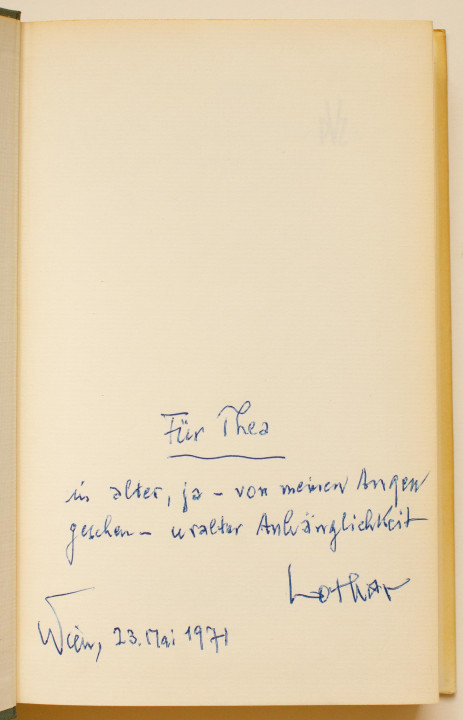 Für Thea
in alter, ja – von meinen Augen
gesehen – uralter Anhänglichkeit
Lothar
Wien, 23. Mai 1971